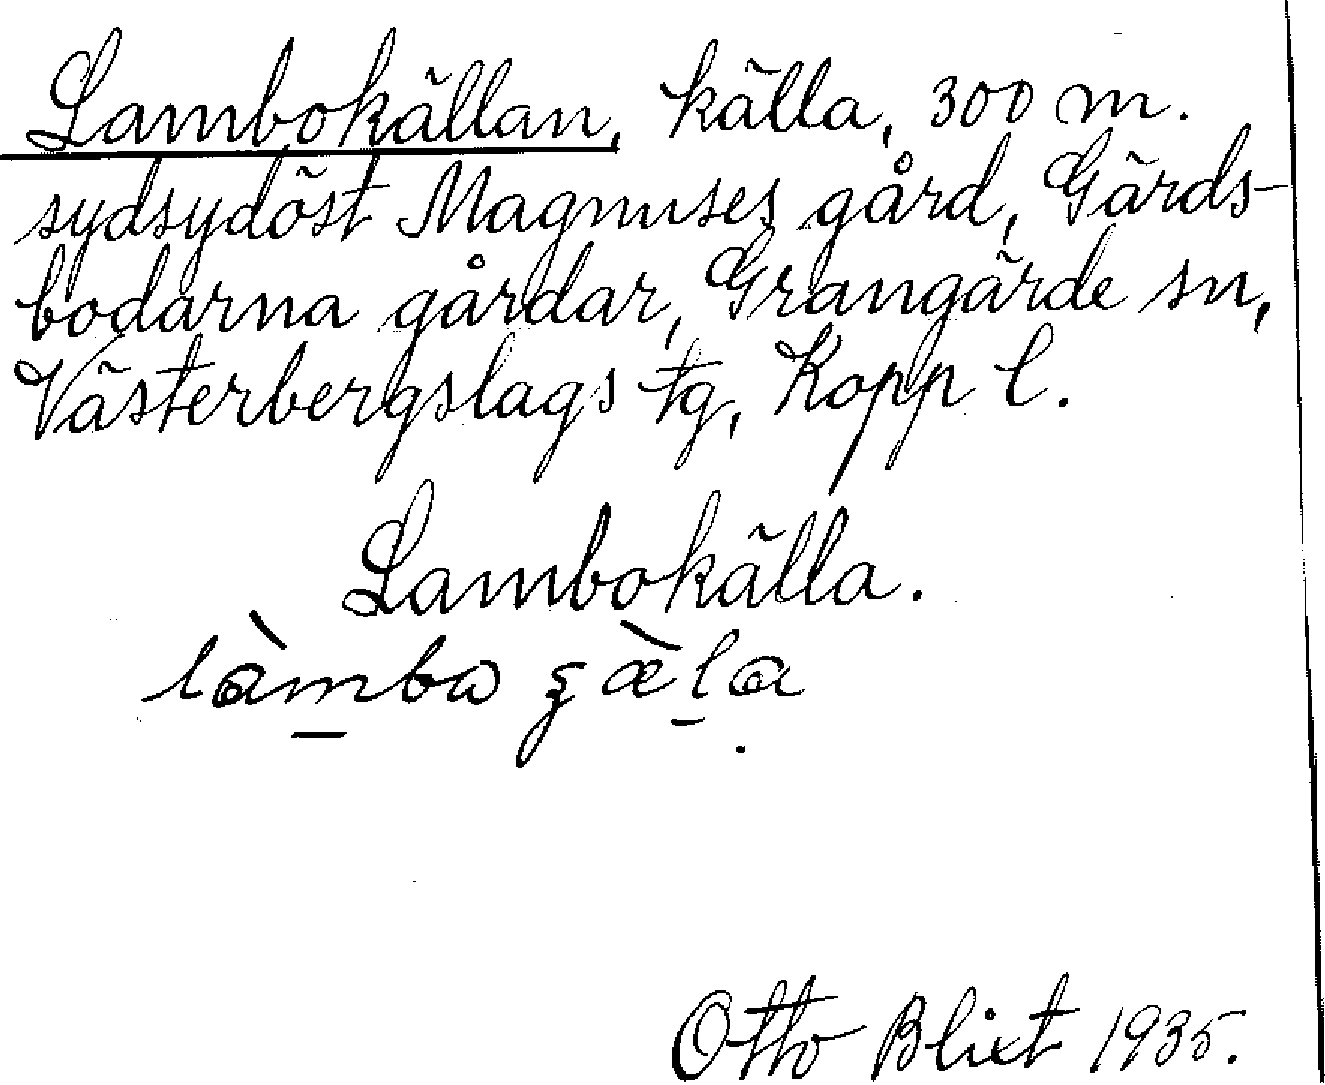 Lambokällan, källa, 300 m.
sydsydöst Magnuses gård, Gärds-
bodarna gårdar, Grangärde sn,
Västerbergslags tg, Kopp l.
Lambokälla.
Otto Blixt 1935.